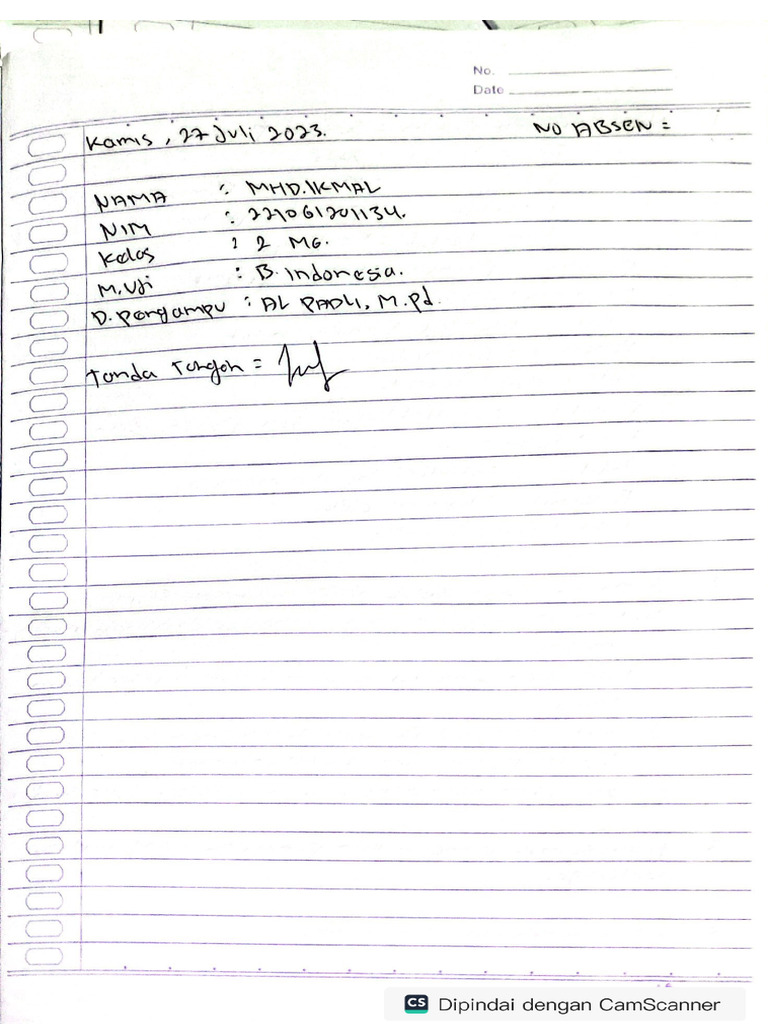 No.
Date
Kamis, 27 Juli 2023.
NO ABSEN =
NAMA : MHD.IKMAL
NIM : 221061201134.
Kelas : 2 MG.
M.Uji : B.Indonesia.
D.Pengampu : AL PADLI, M.Pd.
Tanda Tangan =
CS Dipindai dengan CamScanner